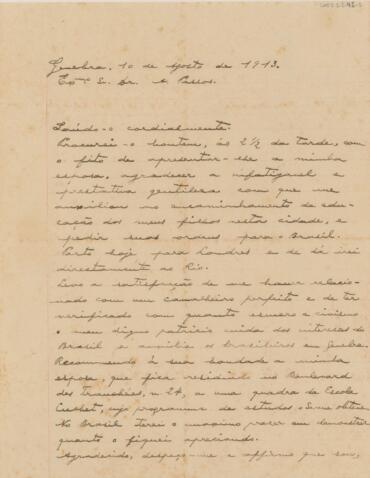 Genebra, 10 de Agosto de 1913.
Exmo S. Dr. A Passos.
Saúdo-o cordialmente.
Procurei-o hontem, ás 2 1/2 da tarde, com
o fito de apresentar-lhe a minha
esposa, agradecer a infatigavel e
prestativa gentilesa com que me
auxiliou no encaminhamento da edu-
cação dos meus filhos nesta cidade, e
pedir suas ordens para o Brasil.
Parto hoje para Londres e de lá irei
directamente ao Rio.
Levo a satisfação de me haver relacio-
nado com um cavalheiro perfeito e de ter
verificado com quanto esmero e civismo
o meu digno patricio cuida dos interesses do
Brasil e auxilia os brasileiros em Genebra.
Recommendo á sua bondade a minha
esposa, que fica residindo no Boulevard
des Tranchées, n. 24, a uma quadra da Escola
cujo programma de estudos
No Brasil terei o maximo prazer em demonstrar
quanto o fiquei apreciando.
Agradecido, despeço-me e affirmo que sou,